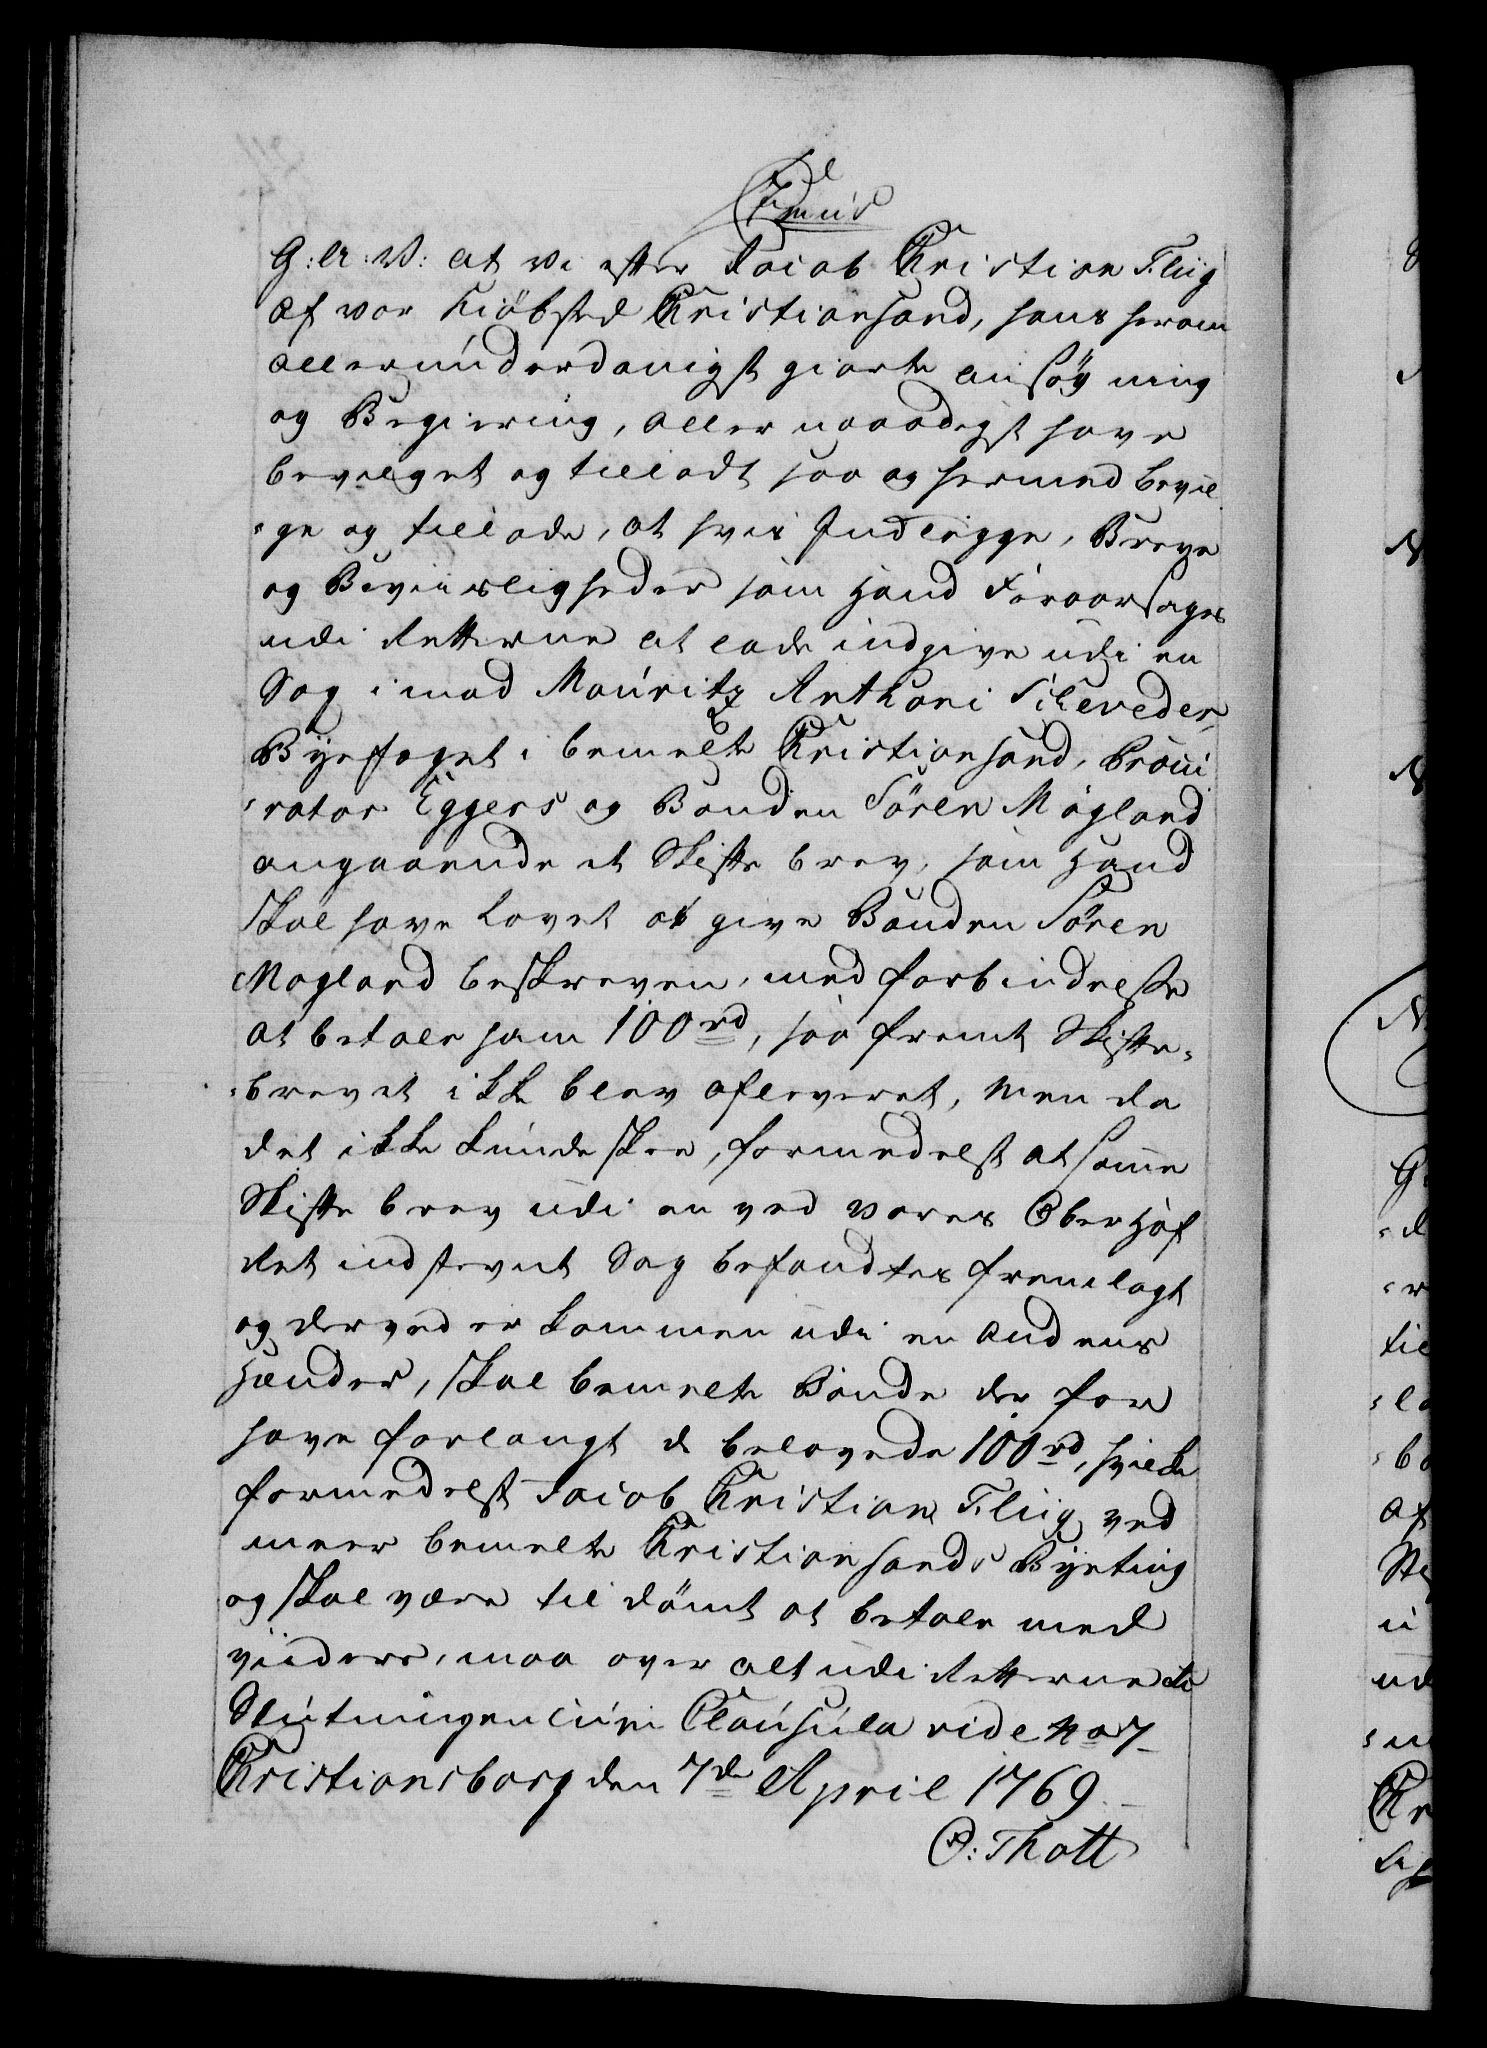 G: A: V: at Vi efter Jacob Christian Fliig
af vor Kiöbsted Christiansand, hans herom
allerunderdanigst giorte Ansögning
og Begiering, allernaadigst have
bevilget og tilladt saa og hermed bevil¬
¬ge og tillade, at hvis Indlægge, Breve
og Beviisligheder som hand foraarsages
udi Retterne at lade indgive udi en
Sag imod Mauritz Anthoni
Byefoget i bemelte Christiansand, Procu¬
¬rator Eggers og Bonden Sören Mögland
angaaende et Skifte brev, som hand
skal have lovet at give Bonden Sören
Mögland beskreven, med forbindelse
at betale ham 100 rd, saa fremt Skifte¬
¬brevet ikke blev afleveret, men da
det ikke kunde skee, formedelst at samme
Skifte brev udi en ved vores Oberhof
Ret indstevnt Sag befandtes fremlagt
og derved er kommen udi en Andens
Hænder, skal bemelte Bonde der for
have forlangt de belovede 100 rd, hvilke
formedelst Jacob Christian Fliig ved
meer bemelte Christiansands Byeting
og skal være til dömt at betale med
viidere, maa over alt udi Retterne etc
Slutningen cum Clausula vide No 7
Christiansborg den 7de April 1769
O: Thott